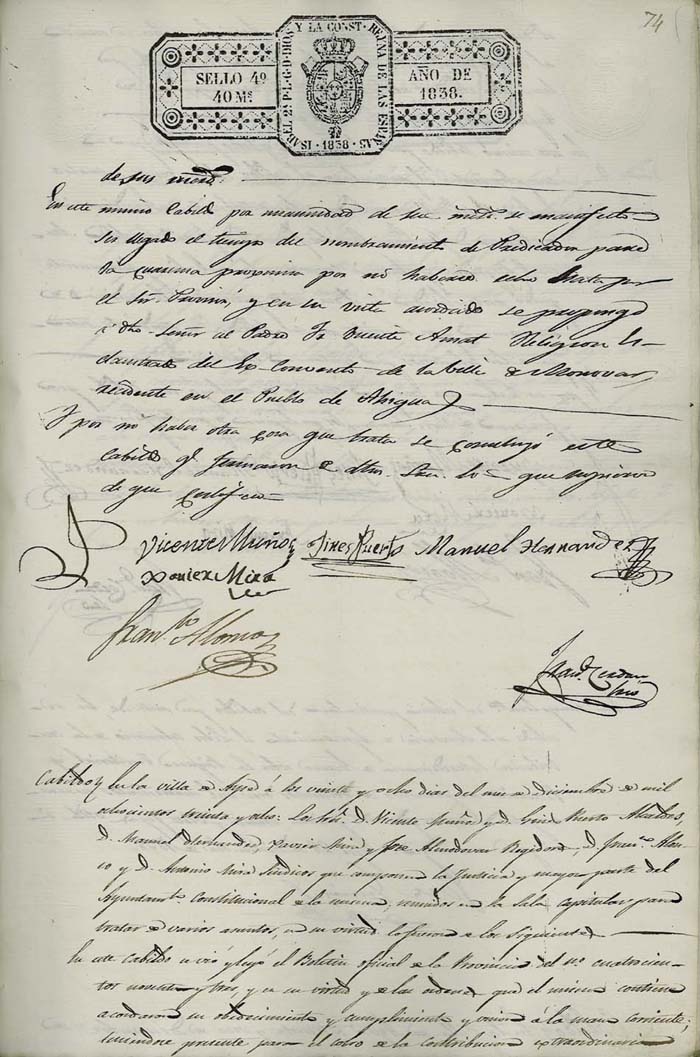 74
SELLO 4º
40 Ms.
ISABEL 2ª P. L. G. D. DIOS Y LA CONST. REINA DE LAS ESPAS.
1838
AÑO DE
1838.
de sus mrds.
En este mismo Cabildo por unanimidad de sus mrds. se manifestó
ser llegado el tiempo del nombramiento de Predicador para
la cuaresma proxima por no haberse echo
el Sor. y en su vista acordado se proponga
a dho. Señor al Padre Fr. Vicente Amat Religioso Es-
claustrado del Ex Convento de la Villa de Monovar,
residente en el Pueblo de
Y por no haber otra cosa que tratar se concluyó este
Cabildo qe. firmaron de dhos. Sres. los que supieron
de que certifico
Vicente Muñoz Jines Puerto Manuel Hernandez
Xavier Mira
Franco. Alonso
Frando. Cerdan
Srio
Cabildo En la villa de á los veinte y ocho dias del mes de Diciembre de mil
ochocientos treinta y ocho: Los Sres. D. Vicente Muñoz y D. Ginés Puerto Alcaldes,
D. Manuel Hernandez, Xavier Mira y José Almodovar Regidores, D. Franco. Alon-
so y D. Antonio Mira Sindicos que componen la Justicia y mayor parte del
Ayuntamto. Constitucional de la misma, reunidos en la Sala Capitular para
tratar de varios asuntos, en su virtud lo fueron de los siguientes
En este Cabildo se vió y leyó el Boletin oficial de la Provincia del no. cuatrocien-
tos noventa y tres, y en su virtud y de las ordenes que el mismo contiene
acordaron su obedecimiento y cumplimiento y á la mano corriente;
teniendose presente para el cobro de la contribucion extraordinaria